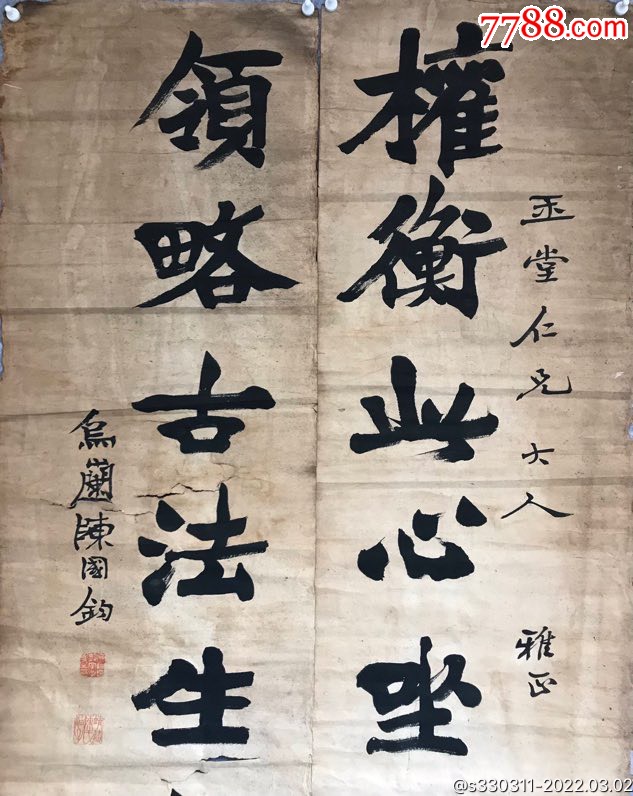 7788.com
玉堂仁兄大人 雅正
權衡此心坐
領略古法生
烏蘭陳國鈞
@s330311-2022.03.02